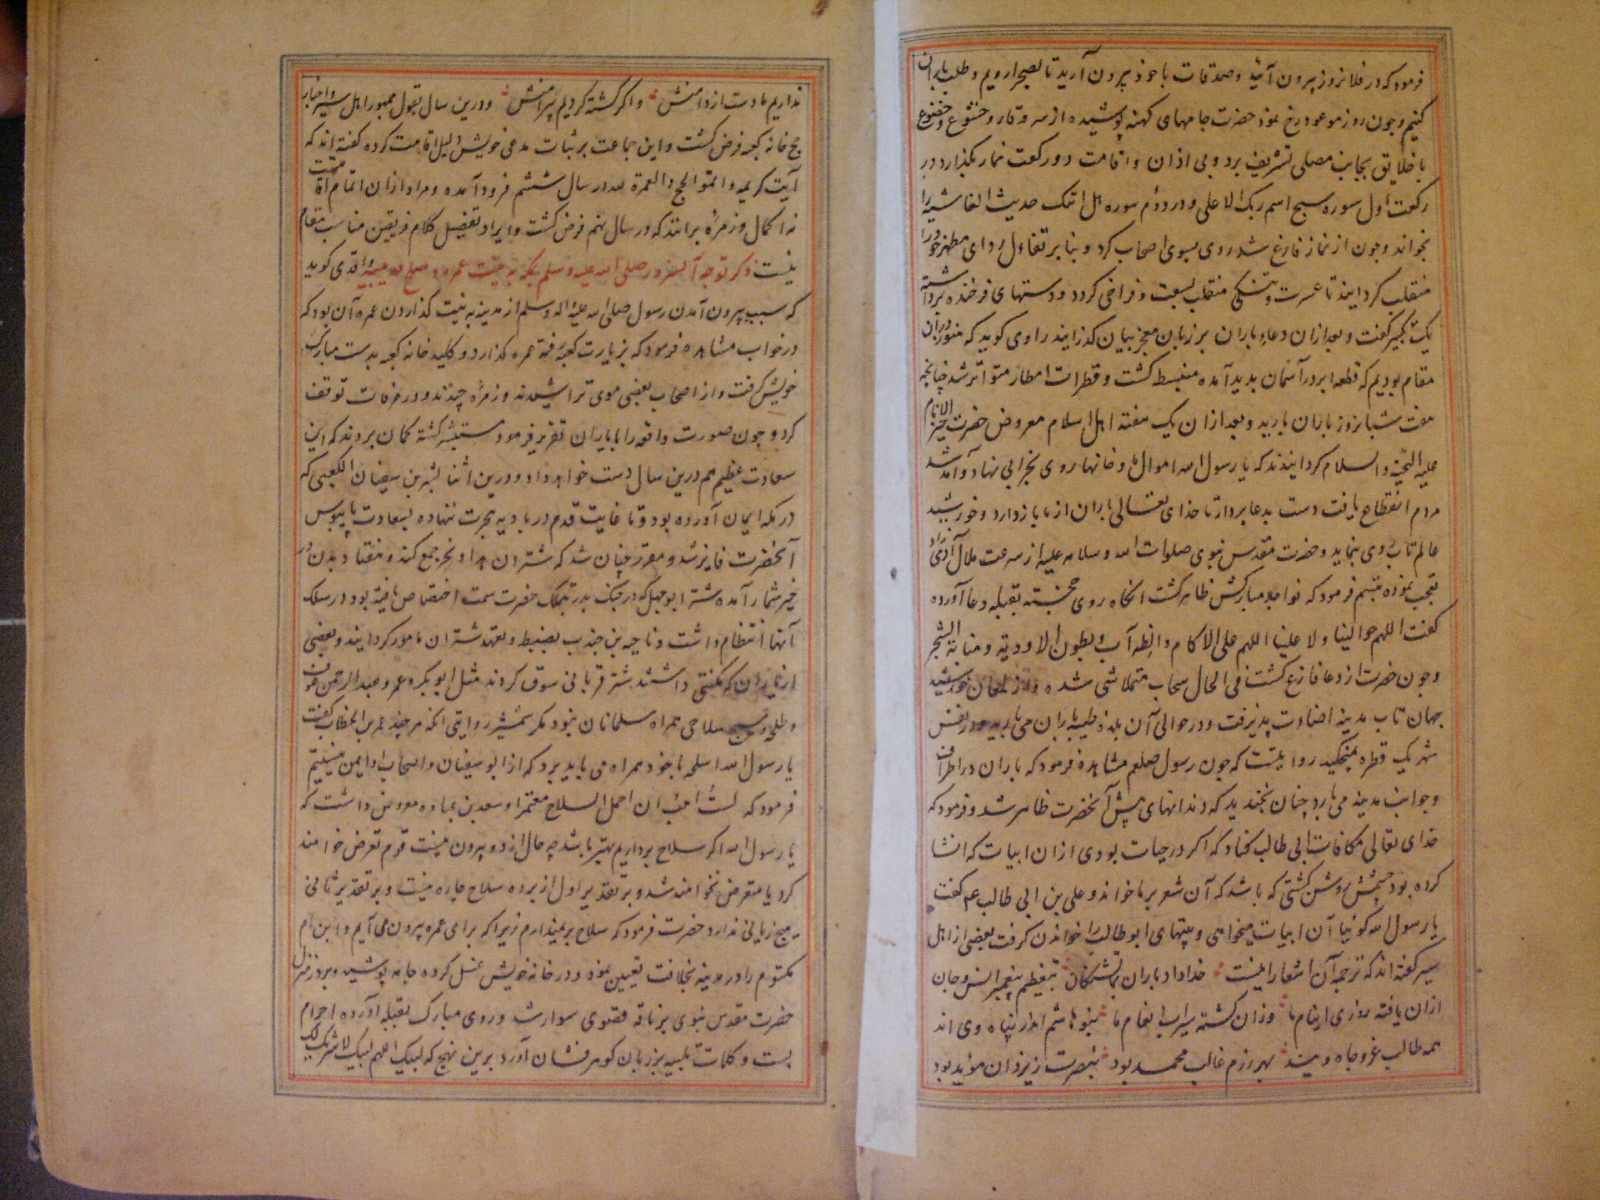 فرمود که در فلان روز بیرون آئید و صدقات با خود بیرون آرید تا بصحرا رویم و طلب باران
کنیم و چون روز موعود رخ نمود حضرت جامهای کهنه پوشیده از سر وقار و خشوع و خضوع
با خلایق بجانب مصلی تشریف برد و بی اذان و اقامت دو رکعت نماز بکذارد در
رکعت اول سوره سبح اسم ربک الاعلی و در دوم سوره هل اتیک حدیث الغاشیه را
بخواند و چون از نماز فارغ شد روی بسوی اصحاب کرد و بنا بر تفاءل ردای مطهر خود را
منقلب کردانید تا عسرت و تنکی منقلب بسعت و فراخی کردد و دستهای فرخنده برداشته
یک تکبیر کفت و بعد ازان دعاء باران بر زبان معجز بیان کذرانید راوی کوید که هنوز دران
مقام بودیم که قطعه ابر در آسمان بدید آمده منبسط کشت و قطرات امطار متواتر شد چنانچه
هفت شبانروز باران بارید و بعد ازان یک هفته اهل اسلام معروض حضرت خیر الانام
علیه التحیة و السلام کردانیدند که یا رسول الله اموال ما و خانها روی بخرابی نهاد و آمدشد
مردم انقطاع یافت دست بدعا بردار تا خدای تعالی باران از ما باز دارد و خورشید
عالم تاب روی بنماید و حضرت مقدس نبوی صلوات الله و سلامه علیه از سرعت ملال آدمی زاد
تعجب نموده تبسم فرمود که نواجذ مبارکش ظاهر کشت انکاه روی خجسته بقبله دعا آورده
کفت اللهم حوالینا و لا علینا اللهم علی الاکام و الظراب و بطون الاودیة و منابة الشجر
و چون حضرت از دعا فارغ کشت فی الحال سحاب متلاشی شده و از لمعان خورشید
جهان تاب مدینه اضاءت پذیرفت و در حوالی آن بلده طیبه باران می بارید و در نفس
شهر یک قطره نمیچکید روایتست که چون رسول صلعم مشاهده فرمود که باران در اطراف
و جوانب مدینه می بارد چنان بخندید که دندانهای پیش آنحضرت ظاهر شد و فرمود که
خدای تعالی مکافات ابی طالب کناد که اکر در حیات بودی ازان ابیات که انشا
کرده بود چشمش روشن کشتی که باشد که آن شعر بر ما خواند و علی بن ابی طالب عم کفت
یا رسول الله کوئیا آن ابیات میخواهی و بیتهای ابوطالب را خواندن کرفت بعضی از اهل
سیر کفته اند که ترجمه آن اشعار اینست خدا داد باران بما تشنکان بتعظیم پیغمبر انس و جان
ازان یافته روزی ایتام ما وزان کشته سیراب انعام ما بنو هاشم اندر پناه وی اند
همه طالب عز و جاه وی‌ند بهر رزم غالب محمد بود بنصرت ز یزدان مؤید بود
نداریم ما دست از دامنش و اکر کشته کردیم پیرامنش و درین سال بقول جمهور اهل سیر و اخبار
حج خانه کعبه فرض کشت و این جماعت بر ثبات مدعی خویش دلیل اقامت کرده کفته اند که
آیت کریمه و اتموا الحج و العمرة لله در سال ششم فرود آمده و مراد ازان اتمام اقامتست
نه اکمال و زمرهٔ برانند که در سال نهم فرض کشت و ایراد تفصیل کلام فریقین مناسب مقام
نیست ذکر توجه آن سرور صلی الله علیه و سلم بمکه به نیت عمره و صلح حدیبیه واقدی کوید
که سبب بیرون آمدن رسول صلی الله علیه و اله و سلم از مدینه به نیت کذاردن عمره آن بود که
در خواب مشاهده فرمود که بزیارت کعبه رفته عمره کذارد و کلید خانه کعبه بدست مبارک
خویش کرفت و از اصحاب بعضی موی تراشیدند و زمرهٔ چیدند و در عرفات توقف
کرد و چون صورت واقعه را با یاران تقریر فرمود مستبشر کشته کمان بردند که این
سعادت عظیم هم درین سال دست خواهد داد و درین اثنا بشر بن سفیان الکعبی که
در مکه ایمان آورده بود و تا غایت قدم در بادیه هجرت ننهاده بسعادت پایبوس
آنحضرت فایز شد و مقرر چنان شد که شتردن هدا و نحر جمع کند و هفتاد بدن در
خیر شمار آمده شتر ابوجهل که در جنک بدر بتملک حضرت سمت اختصاص یافته بود در سلک
آنها انتظام داشت و ناجیه بن جندب بضبط و تعهد شتران مامور کردانیدند و بعضی
از یاران که مکنتی داشتند شتر قربانی سوق کردند مثل ابوبکر و عمر و عبد الرحمن عوف
و طلحه و هیچ سلاحی همراه مسلمانان نبود مکر شمشیر روایتی انکه هر چند عمر بن الخطاب کفت
یا رسول الله اسلحه با خود همراه می باید برد که از ابوسفیان و اصحاب او ایمن نیستیم
فرمود که لست احب ان احمل السلاح معتمرا و سعد بن عباده معروض داشت که
یا رسول الله اکر سلاح برداریم بهتر باشد چه حال از دو بیرون نیست قوم تعرض خواهند
کرد یا متعرض نخواهند شد و بر تقدیر اول از بردن سلاح چاره نیست و بر تقدیر ثانی
هیچ زیانی ندارد حضرت فرمود که سلاح بر نمیدارم زیرا که برای عمره بیرون می آیم و ابن ام
مکتوم را در مدینه بخلافت تعیین نمود و در خانه خویش غسل کرده جامه پوشید و بر در منزل
حضرت مقدس نبوی بر ناقه قصوی سوار شد و روی مبارک بقبله آورده احرام
بست و کلمات تلبیه بر زبان کوهر فشان آورد برین نهج که لبیک اللهم لبیک لا شریک لک